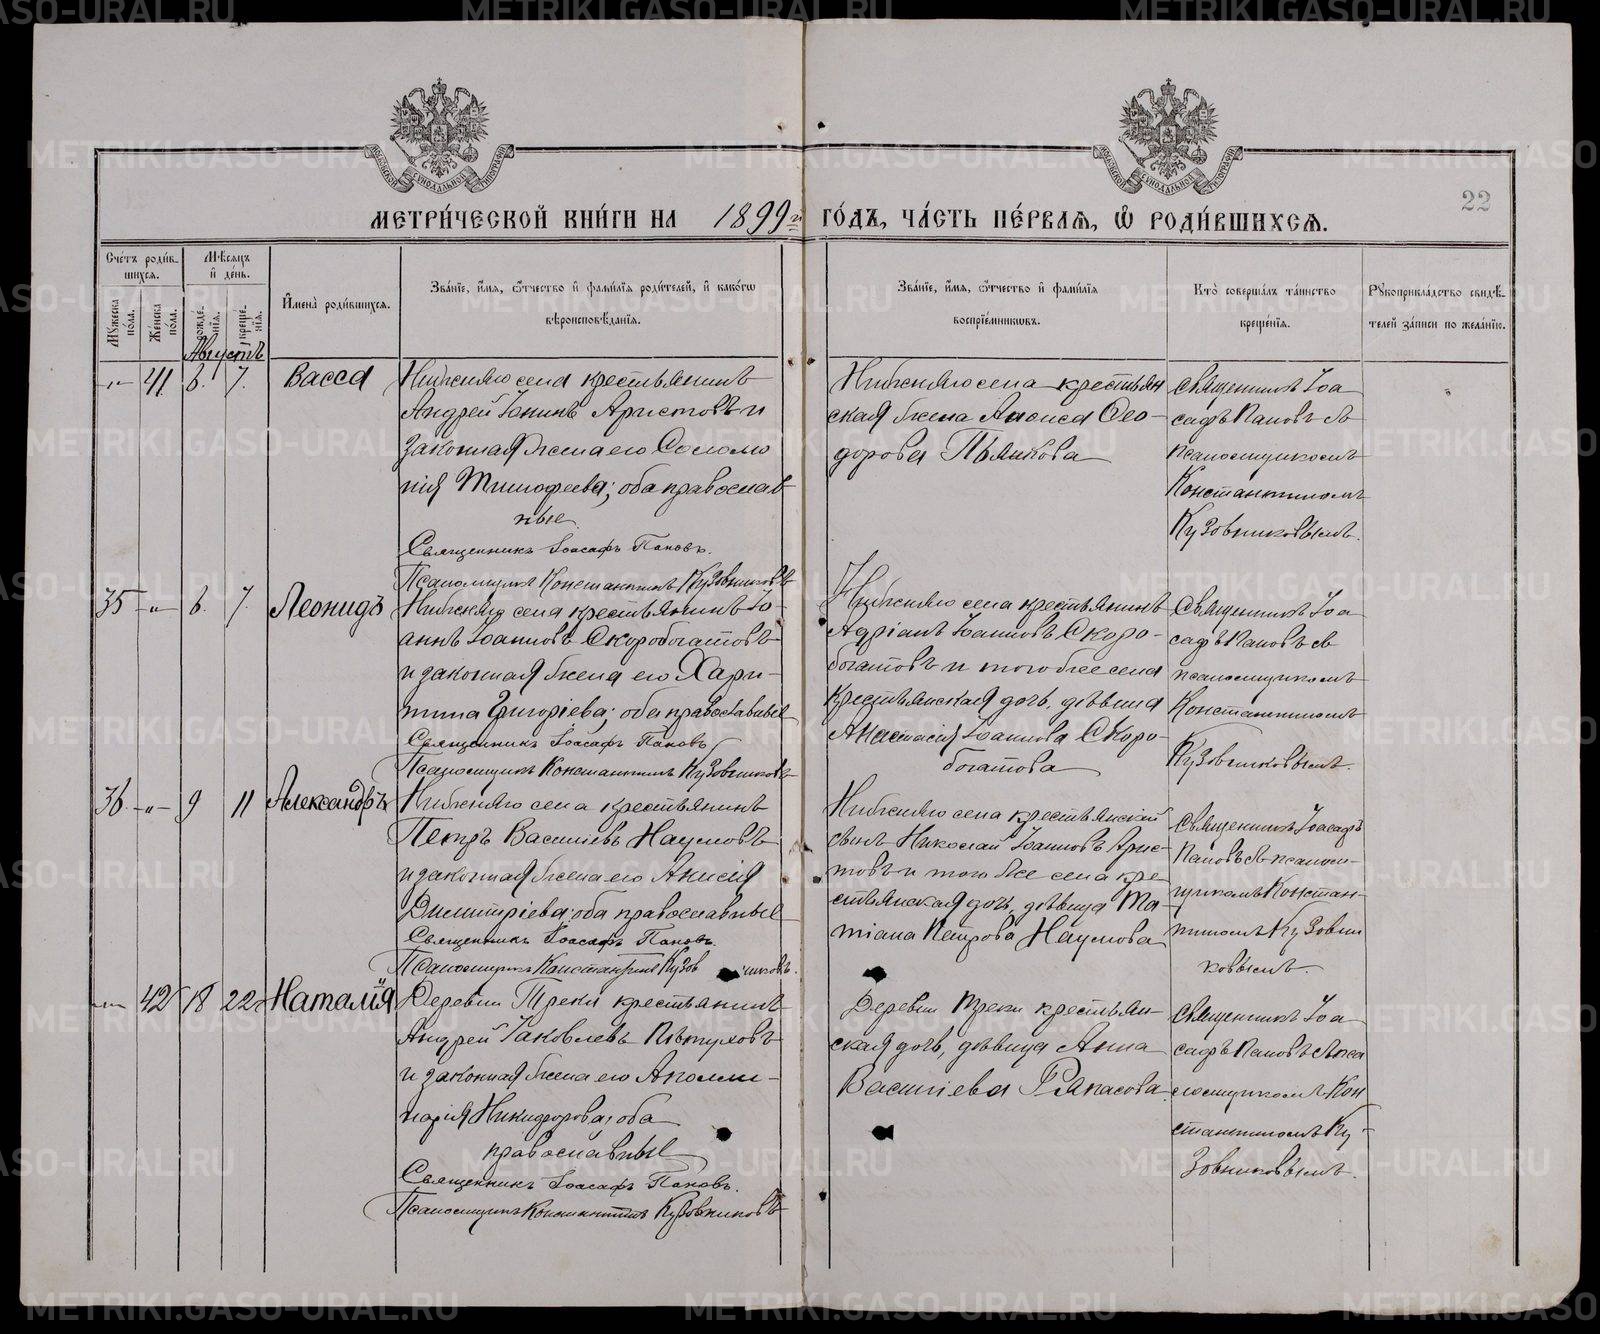 22
МЕТРИ́ЧЕСКОЙ КНИ́ГИ НА 1899 й ГО́ДЪ, ЧА́СТЬ ПЕ́РВАѦ, Ѡ҆ РОДИ́ВШИХСѦ.
Сче́тъ роди́в-
шихсѧ.
Мꙋ́жеска по́ла.
Же́нска по́ла.
Мѣ́сѧцъ
и҆ де́нь.
рожде́-
нїѧ.
креще́-
нїѧ.
И҆мена̀ роди́вшихсѧ.
Зва́нїе, и҆́мѧ, ѻ҆́тчество и҆ фами́лїѧ роди́телей, и҆ како́гѡ
вѣроисповѣ́данїѧ.
Зва́нїе, и҆́мѧ, ѻ҆́тчество и҆ фами́лїѧ
воспрїе́мникѡвъ.
Кто̀ соверша́лъ та́инство
креще́нїѧ.
Рꙋкоприкла́дство свидѣ́-
телей за́писи по жела́нїю.
Августъ
-"- 41 6. 7. Васса
Нижняго села крестьянинъ
Андрей Іонинъ Аристовъ и
законная жена его Соломо
нія Тимофеева; оба православ-
ные
Священникъ Іоасафъ Пановъ.
Псаломщикъ Константинъ Кузовниковъ
Нижняго села крестьян
ская жена Анфиса Ѳео-
дорова Пьянкова
Священникъ Іоа
сафъ Пановъ съ
псаломщикомъ
Константиномъ
Кузовниковымъ.
35 -"- 6. 7. Леонидъ
Нижняго села крестьянинъ Іо-
аннъ Іоанновъ Скоробогатовъ
и законная жена его Хари-
тина Григоріева; оба православные
Священникъ Іоасафъ Пановъ
Псаломщикъ Константинъ Кузовниковъ
Нижняго села крестьянинъ
Адріанъ Іоанновъ Скоро-
богатовъ и того же села
крестьянская дочь, дѣвица
Анастасія Іоаннова Скоро-
богатова
Священникъ Іоа
сафъ Пановъ съ
псаломщикомъ
Константиномъ
Кузовниковымъ.
36 -"- 9 11 Александръ
Нижняго села крестьянинъ
Петръ Василіевъ Наумовъ
и законная жена его Анисія
Димитріева; оба православные
Священникъ Іоасафъ Пановъ.
Псаломщикъ Константинъ Кузовниковъ.
Нижняго села крестьянскій
сынъ Николай Іоанновъ Арис-
товъ и того же села кре
стьянская дочь, дѣвица Та-
тіана Петрова Наумова
Священникъ Іоасафъ
Пановъ съ псалом-
щикомъ Констан-
тиномъ Кузовни
ковымъ.
-"- 42 18 22 Наталія
Деревни Треки крестьянинъ
Андрей Іаковлевъ Пѣтуховъ
и законная жена его Аполли-
нарія Никифорова; оба
православные
Священникъ Іоасафъ Пановъ.
Псаломщикъ Константинъ Кузовниковъ
Деревни Треки крестьян-
ская дочь, дѣвица Анна
Василіева Рякасова
Священникъ Іоа
сафъ Пановъ съ пса
ломщикомъ Кон
стантиномъ Ку-
зовниковымъ.
METRIKI.GASO-URAL.RU